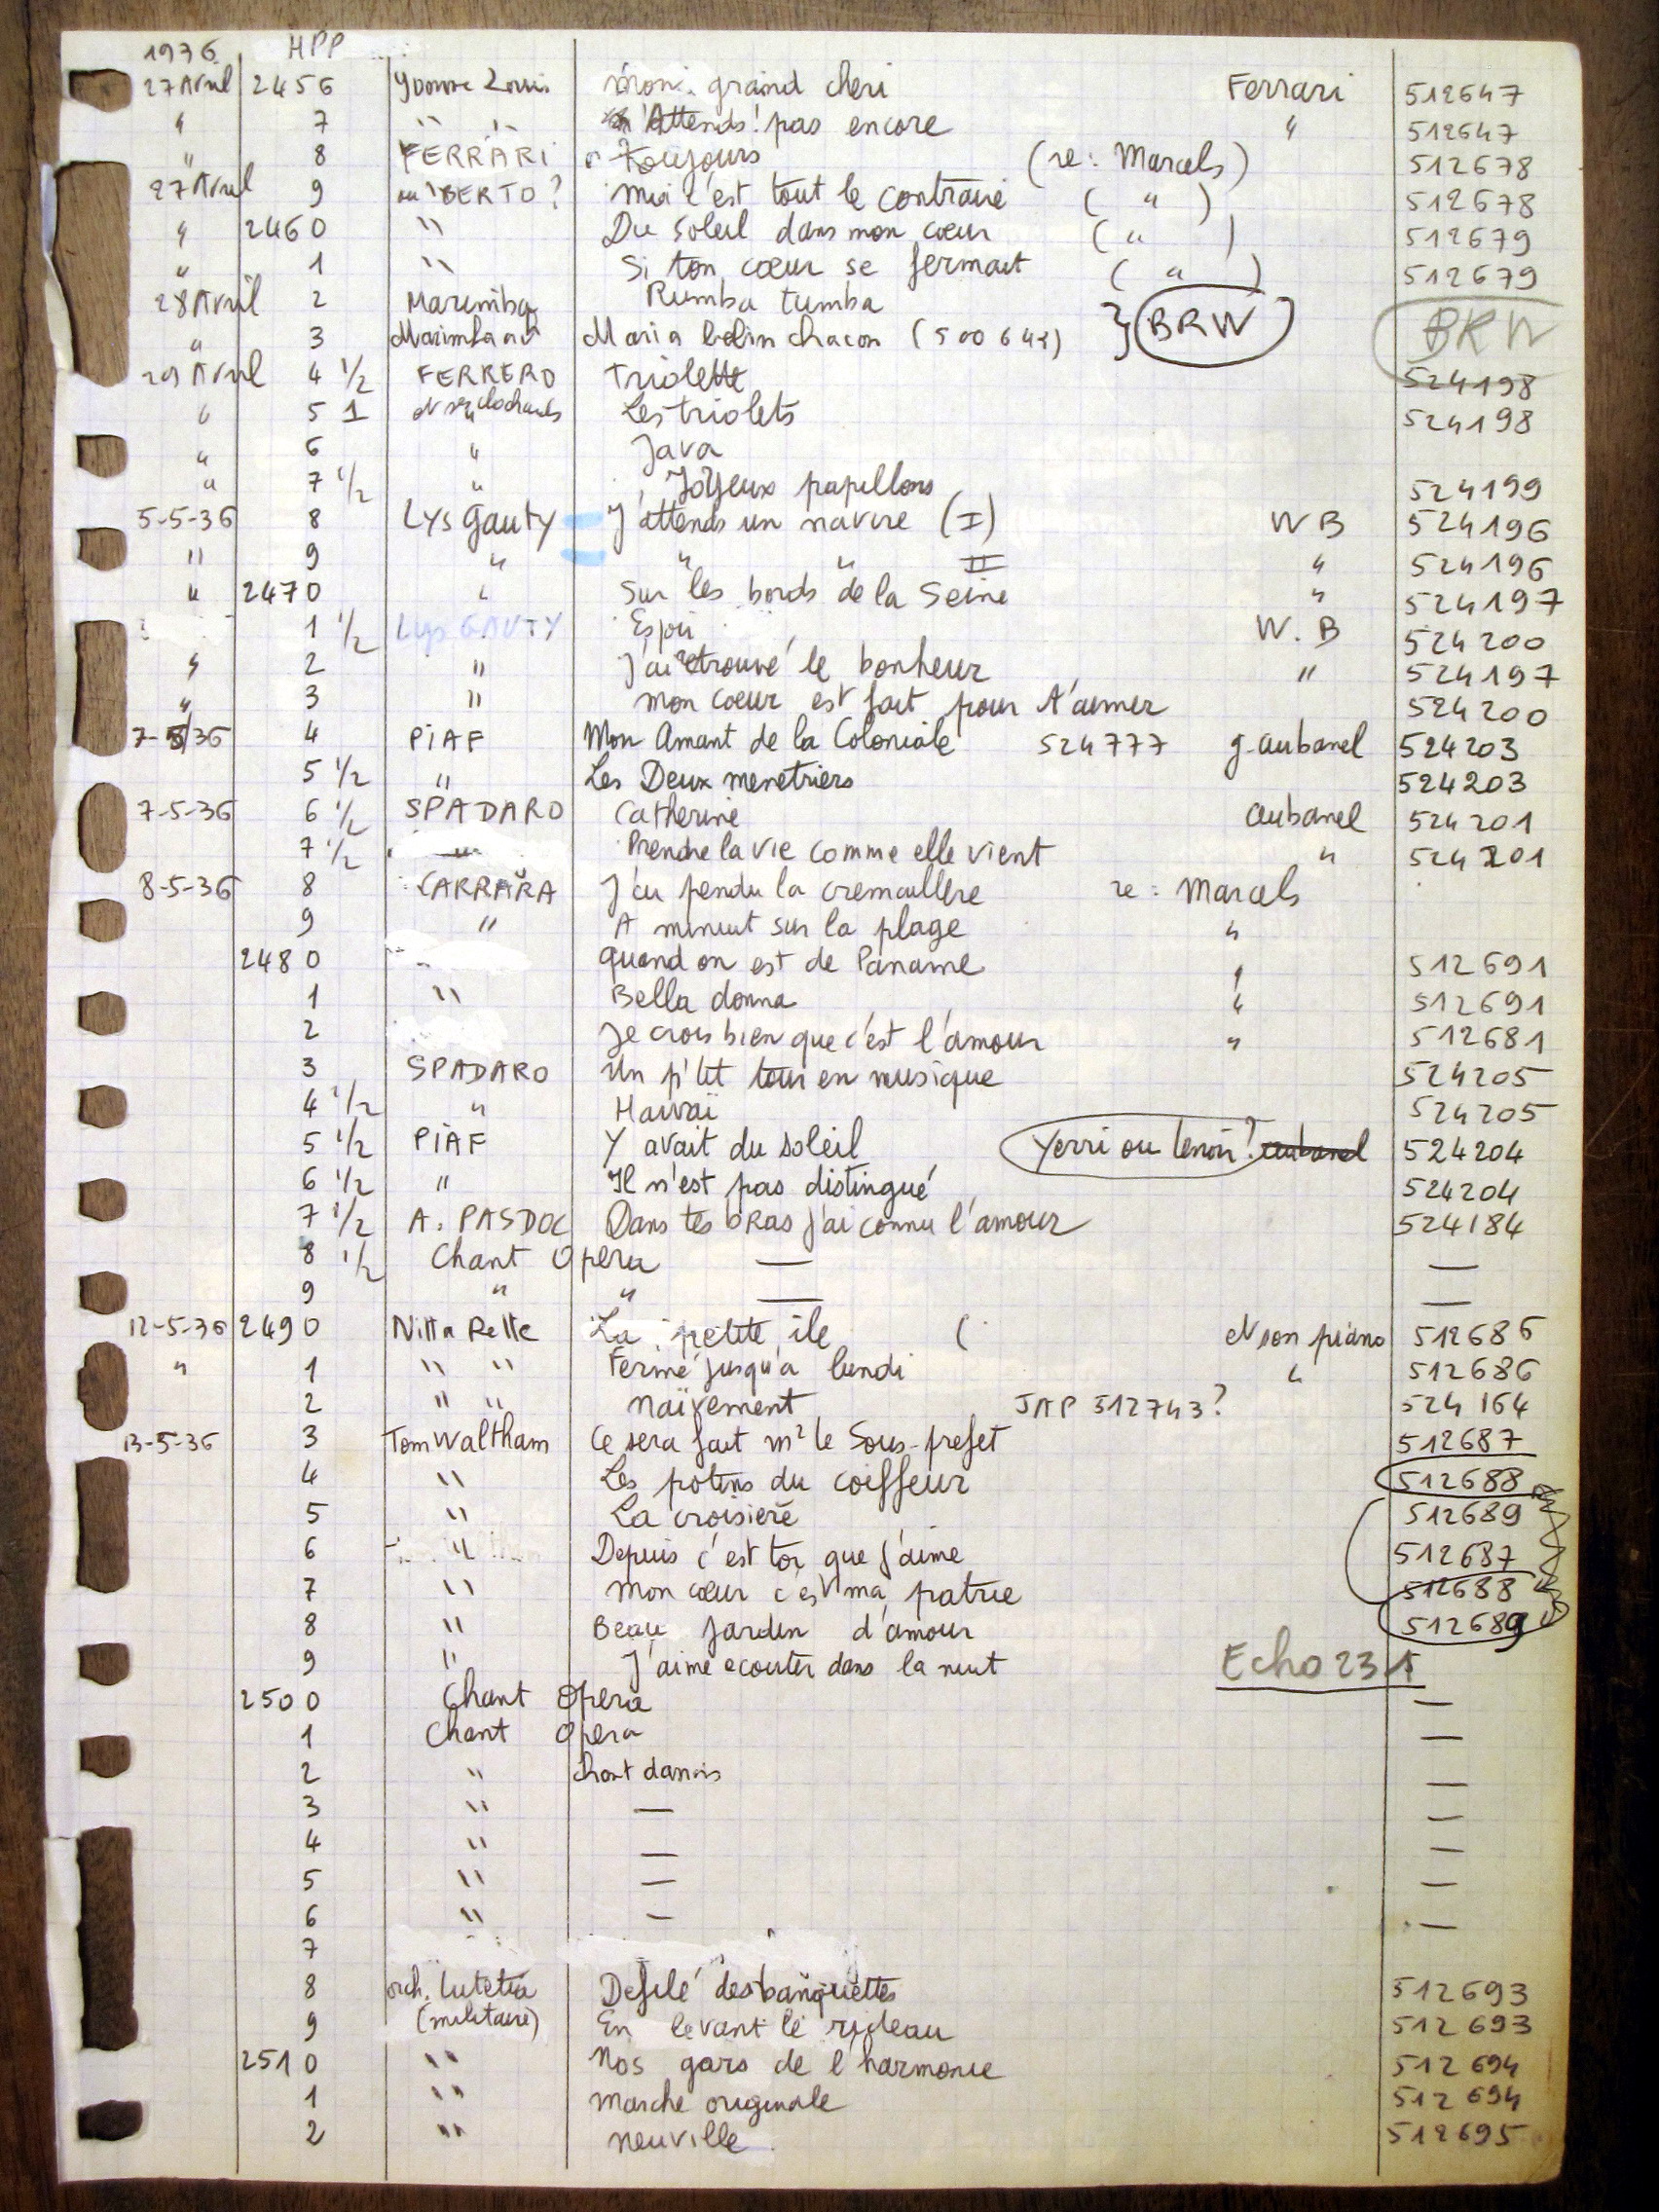 1936 HPP
27 Avril 2456 Yvonne Louis mon grand cheri Ferrari 512647
" 7 " " Attends! pas encore " 512647
" 8 FERRARI Toujours (re: Marcels) 512678
27 Avril 9 ou BERTO? Moi c'est tout le contraire ( " ) 512678
" 2460 " Du soleil dans mon coeur ( " ) 512679
" 1 " Si ton coeur se fermait ( " ) 512679
28 Avril 2 Marimba Rumba tumba } BRW BRW
" 3 Marimba Maria belin chacon (500643)
29 Avril 4 1/2 FERRERO Triolette 524198
" 5 1 et ses clochards Les triolets 524198
" 6 " Java
" 7 1/2 " Joyeux papillons 524199
5-5-36 8 Lys Gauty J'attends un navire (I) WB 524196
" 9 " " " II " 524196
" 2470 " Sur les bords de la Seine " 524197
1 1/2 Lys GAUTY Espoir W.B 524200
" 2 " J'ai retrouvé le bonheur " 524197
" 3 " mon coeur est fait pour t'aimer 524200
7-5/36 4 PIAF Mon Amant de la Coloniale 524777 g. aubanel 524203
5 1/2 " Les Deux menetriers 524203
7-5-36 6 1/2 SPADARO Catherine aubanel 524201
7 1/2 Prendre la vie comme elle vient " 524201
8-5-36 8 CARRARA J'ai pendu la cremaillere re: Marcels
9 " A minuit sur la plage "
2480 quand on est de Paname " 512691
1 " Bella donna " 512691
2 Je crois bien que c'est l'amour " 512681
3 SPADARO Un p'tit tour en musique 524205
4 1/2 " Hawaï 524205
5 1/2 PIAF Y avait du soleil Yerri ou Lenoir? aubanel 524204
6 1/2 " Il n'est pas distingué 524204
7 1/2 A. PASDOC Dans tes bras j'ai connu l'amour 524184
8 1/2 Chant Opera — —
9 " " — —
12-5-36 2490 Nitta Rette La petite ile ( et son piano 512686
" 1 " " Fermé jusqu'a lundi " 512686
2 " " Naïvement JAP 512743? 524164
13-5-36 3 Tom Waltham Ce sera fait mr le Sous-prefet 512687
4 " Les potins du coiffeur 512688
5 " La croisière 512689
6 " Depuis c'est toi que j'aime 512687
7 " mon coeur c'est ma patrie 512688
8 " Beau jardin d'amour 512689
9 " J'aime ecouter dans la nuit Echo 231
2500 Chant Opera —
1 Chant opera —
2 " Chant danois —
3 " — —
4 " — —
5 " — —
6 " — —
7
8 orch. Lutetia Defilé des banquettes 512693
9 (militaire) En levant le rideau 512693
2510 " Nos gars de l'harmonie 512694
1 " marche originale 512694
2 " neuville 512695